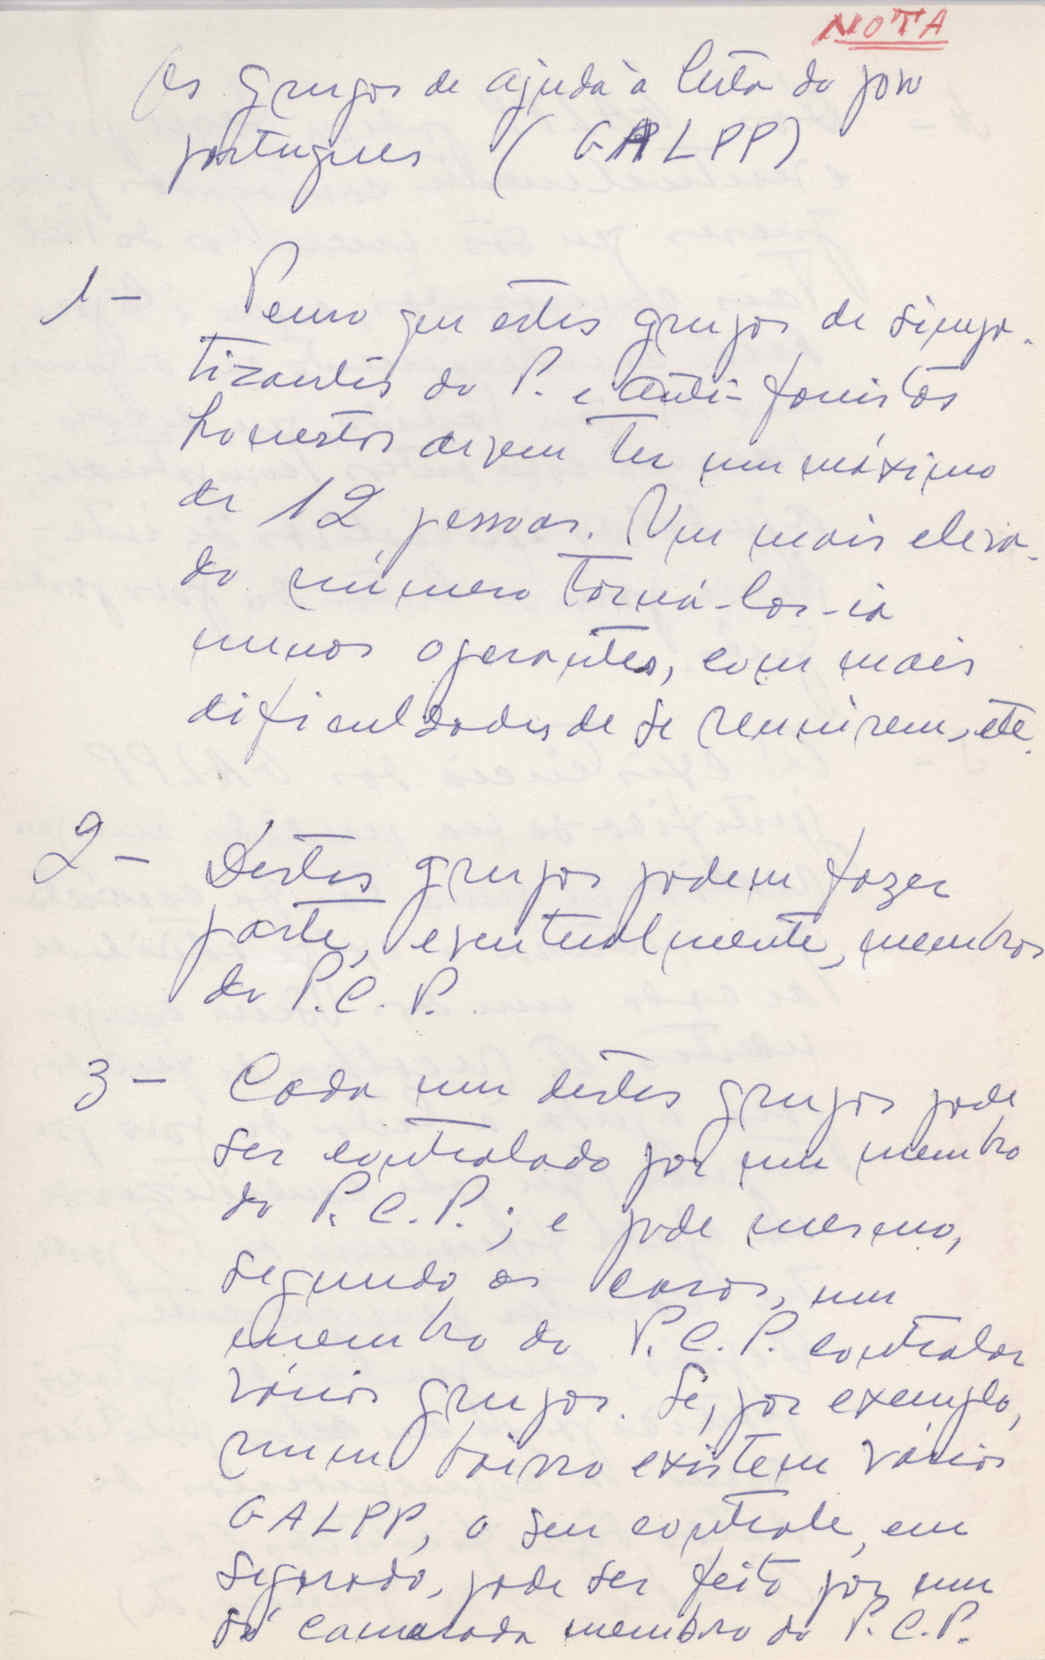 NOTA
Os grupos de ajuda à luta do povo
português (GALPP)
1 - Penso que estes grupos de simpa-
tizantes do P. e anti-fascistas
honestos devem ter um máximo
de 12 pessoas. Um mais eleva-
do número torná-los-ia
menos operantes, com mais
dificuldades de se reunirem, etc.
2 - Destes grupos podem fazer
parte, eventualmente, membros
do P.C.P.
3 - Cada um destes grupos pode
ser controlado por um membro
do P.C.P.; e pode mesmo,
segundo os casos, um
membro do P.C.P. controlar
vários grupos. Se, por exemplo,
num bairro existem vários
GALPP, o seu controle, em
separado, pode ser feito por um
só camarada membro do P.C.P.